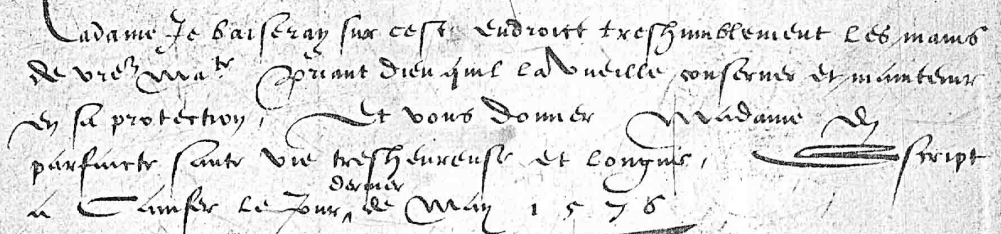 Madame Je baiseray sur cest endroict treshumblement les mains
de vre Ma.te Priant dieu quil la vueille conserver et maintenir
en sa protection, Et vous donner Madame En
parfaicte sante vie tresheureuse et longue, Escript
a le Jour dernier de May 1576